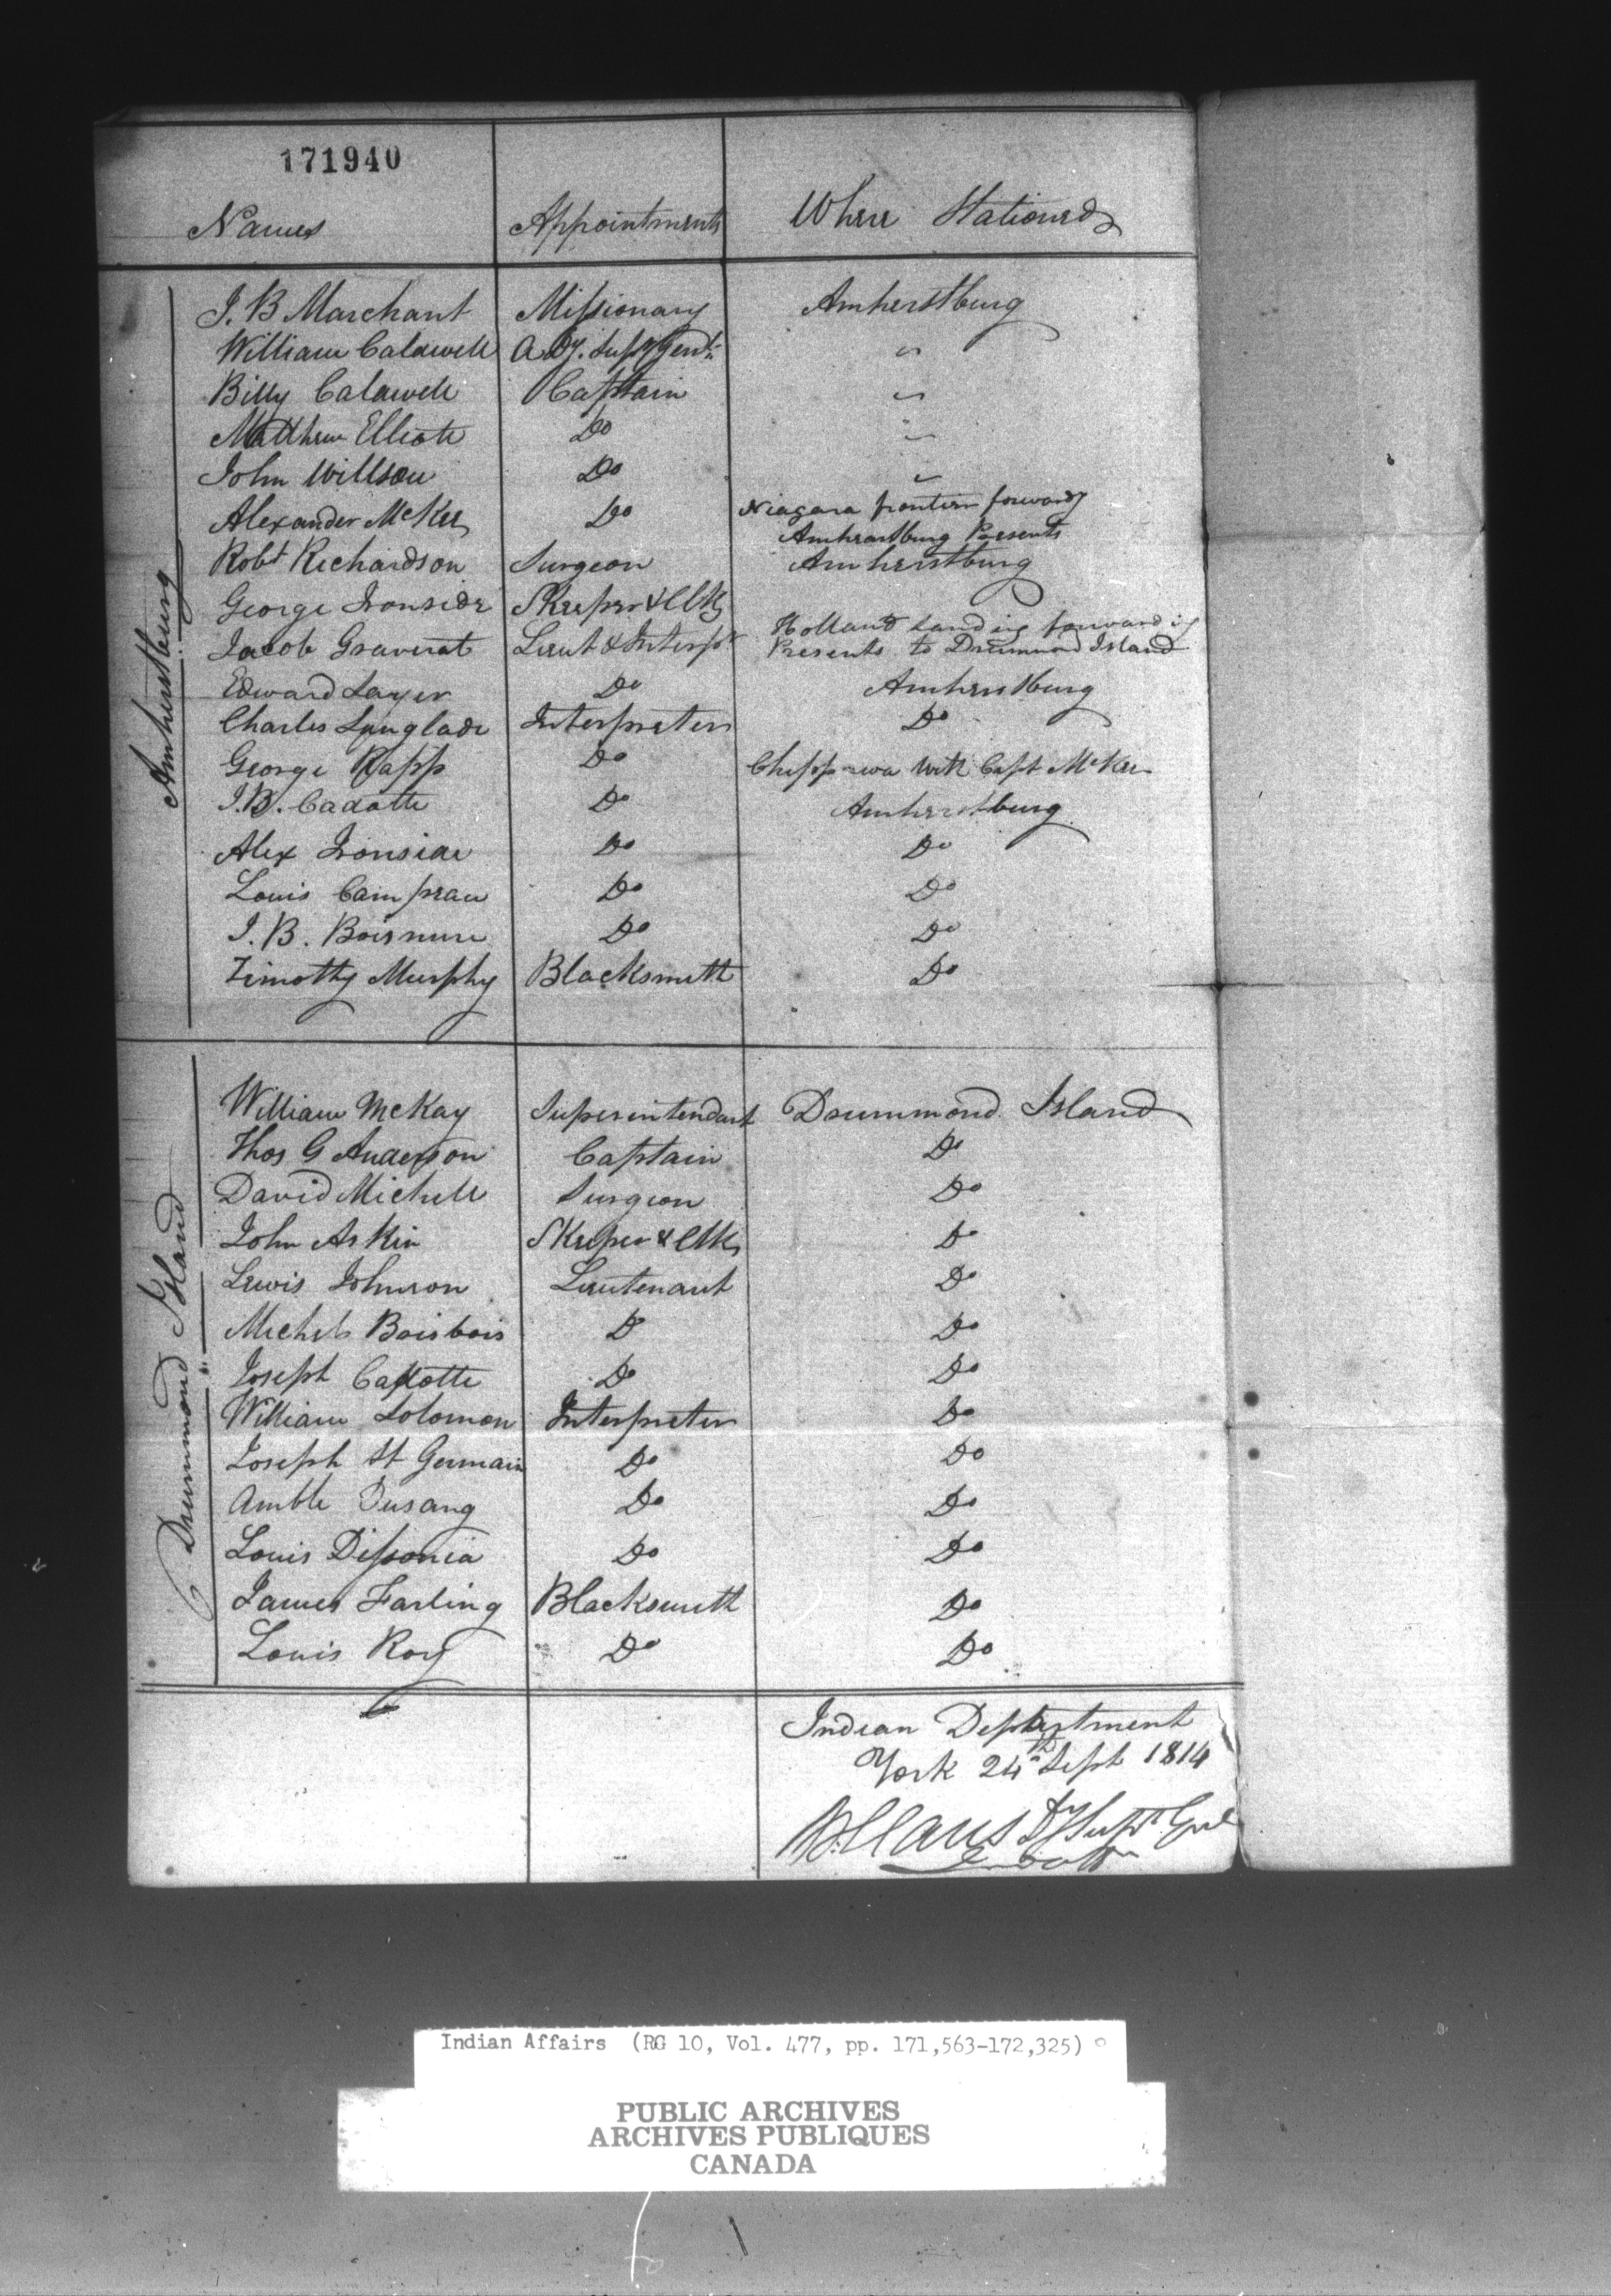 171940
Names Appointments Where Stationed
Amherstburg
J. B Marchant Missionary Amherstburg
William Caldwell A. Dy. Supt Genl "
Billy Caldwell Captain "
Matthew Elliott Do "
John Willson Do "
Alexander McKee Do Niagara frontier forwardg
Amherstburg Presents
Robt Richardson Surgeon Amherstburg
George Ironside SKeeper & Clk
Jacob Graverat Lieut & Interpr Holland Landing forwarding
Presents to Drummond Island
Edward Sayer Do Amherstburg
Charles Langlade Interpreter Do
George Rapp Do Chippawa with Capt McKee
J. B. Cadotte Do Amherstburg
Alex Ironside Do Do
Louis Campeau Do Do
J. B. Do Do
Timothy Murphy Blacksmith Do
Drummond Island
William McKay Superintendant Drummond Island
Thos G Anderson Captain Do
David Michell Surgeon Do
John Askin SKeeper & Clk Do
Lewis Johnson Lieutenant Do
Michel Boisbois D Do
Joseph Cadotte Do Do
William Solomon Interpreter Do
Joseph St Germain Do Do
Amble Dusang Do Do
Louis Dissonia Do Do
James Farling Blacksmith Do
Louis Roy Do Do
Indian Department
York 24th Sept 1814
W Claus Dy Supt Genl
Indian Affairs (RG 10, Vol. 477, pp. 171,563-172,325)
PUBLIC ARCHIVES
ARCHIVES PUBLIQUES
CANADA